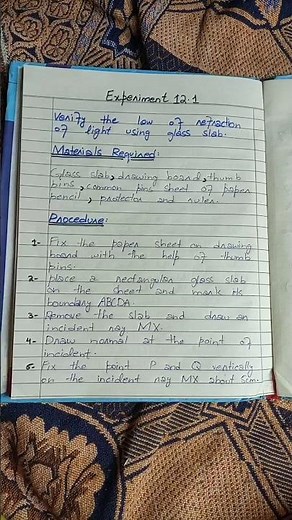 Experiment 12.1
Verify the law of refraction
of light using glass slab.
Materials Required:
Glass slab, drawing board, thumb
pins, common pins sheet of paper
pencil, protector and ruler.
Procedure:
1- Fix the paper sheet on drawing
board with the help of thumb
pins.
2- Place a rectangular glass slab
on the sheet and mark its
boundary ABCDA.
3- Remove the slab and draw an
incident ray MX.
4- Draw normal at the point of
incident.
5- Fix the point P and Q vertically
on the incident ray MX about 5cm.